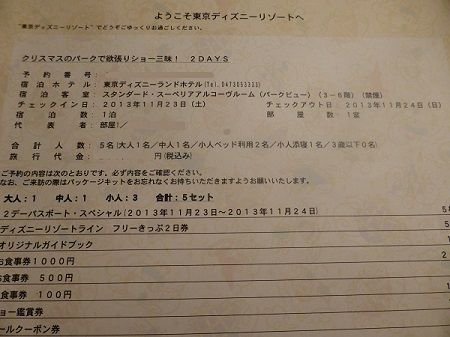 ようこそ東京ディズニーリゾートへ
"東京ディズニーリゾート"でどうぞごゆっくりお過ごしください。
クリスマスのパークで欲張りショー三昧! 2DAYS
予約番号:
宿泊ホテル:東京ディズニーランドホテル(Tel.0473053333)
宿泊客室:スタンダード・スーペリアアルコーヴルーム(パークビュー)(3-6階)(禁煙)
チェックイン日:2013年11月23日(土) チェックアウト日:2013年11月24日(日)
宿泊数:1泊 部屋数:1室
代表者:部屋1/
合計人数:5名(大人1名/中人1名/小人ベッド利用2名/小人添寝1名/3歳以下0名)
旅行代金: 円(税込み)
ご予約の内容は次のとおりです。必ず内容をご確認ください。
なお、ご来訪の際はパッケージキットをお忘れなくお持ちいただきますようお願いいたします。
大人:1 中人:1 小人:3 合計:5セット
2デーパスポート・スペシャル(2013年11月23日~2013年11月24日) 5
ディズニーリゾートライン フリーきっぷ2日券 5
オリジナルガイドブック
お食事券1000円 2
お食事券 500円
食事券 100円
ョー鑑賞券
ールクーポン券